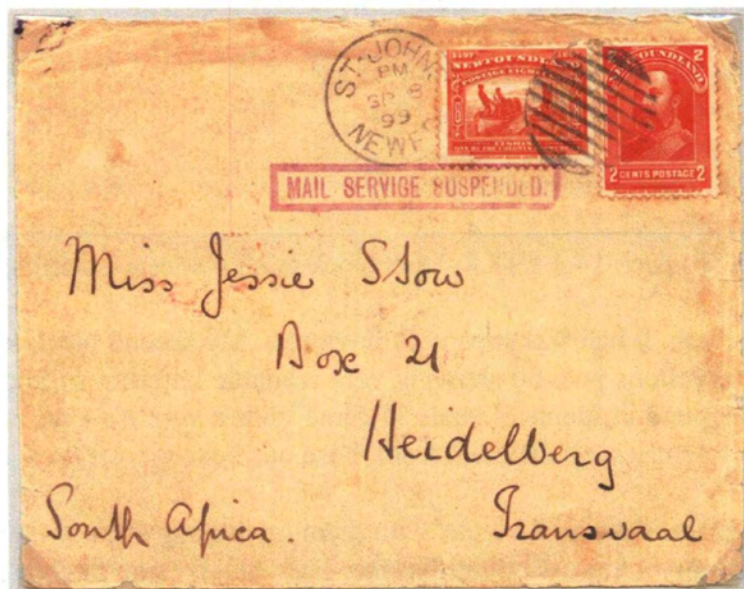 ST. JOHN'S
PM
SP 8
99
NEWF
NEWFOUNDLAND
POSTAGE EIGHT
2
NEWFOUNDLAND
2 CENTS POSTAGE 2
MAIL SERVICE SUSPENDED.
Miss Jessie Stow
Box 21
Heidelberg
South Africa.
Transvaal